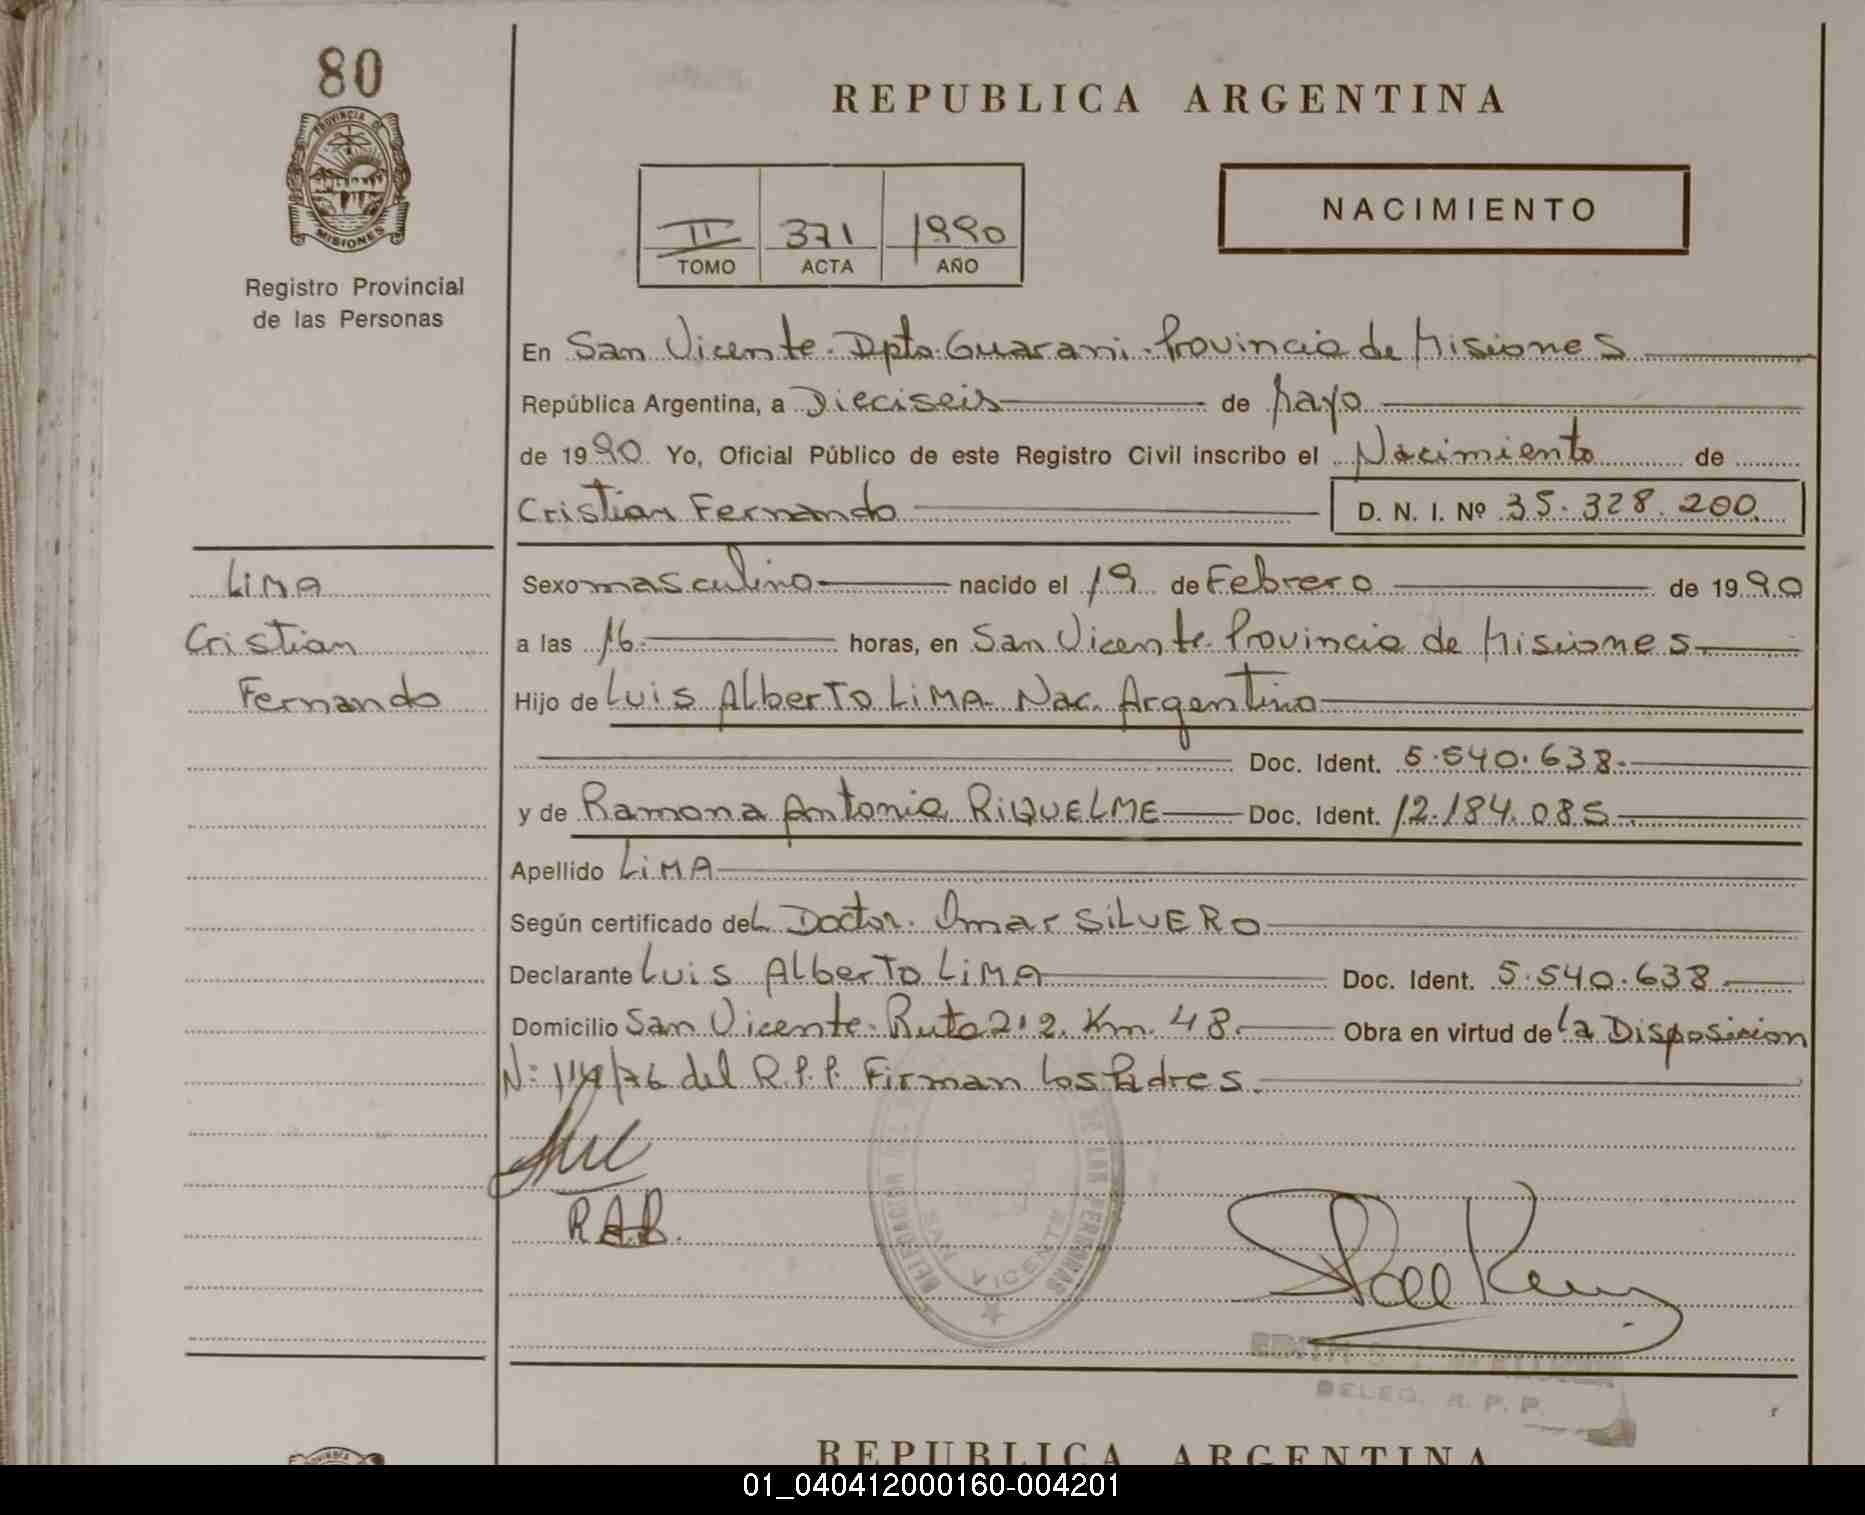 80
PROVINCIA DE
MISIONES
Registro Provincial
de las Personas
REPUBLICA ARGENTINA
II 371 1990
TOMO ACTA AÑO
NACIMIENTO
En San Vicente. Dpto. Guarani. Provincia de Misiones
República Argentina, a Dieciseis de Mayo
de 1990 Yo, Oficial Público de este Registro Civil inscribo el Nacimiento de
Cristian Fernando D. N. I. Nº 35.328.200
LIMA
Cristian
Fernando
Sexo masculino nacido el 19 de Febrero de 1990
a las 16 horas, en San Vicente. Provincia de Misiones
Hijo de Luis Alberto LiMA. Nac. Argentino
Doc. Ident. 5.540.638.
y de Ramona Antonia RiQUELME Doc. Ident. 12.184.085
Apellido LiMA
Según certificado del Doctor. Omar SiLVERO
Declarante Luis Alberto LiMA Doc. Ident. 5.540.638
Domicilio San Vicente. Ruta 212. Km. 48. Obra en virtud de la Disposicion
N: /76 del R.P.P. Firman los Padres.
DELEGACION DE LAS PERSONAS
SAN VICENTE
DELEG. R. P. P.
REPUBLICA ARGENTINA
01_040412000160-004201